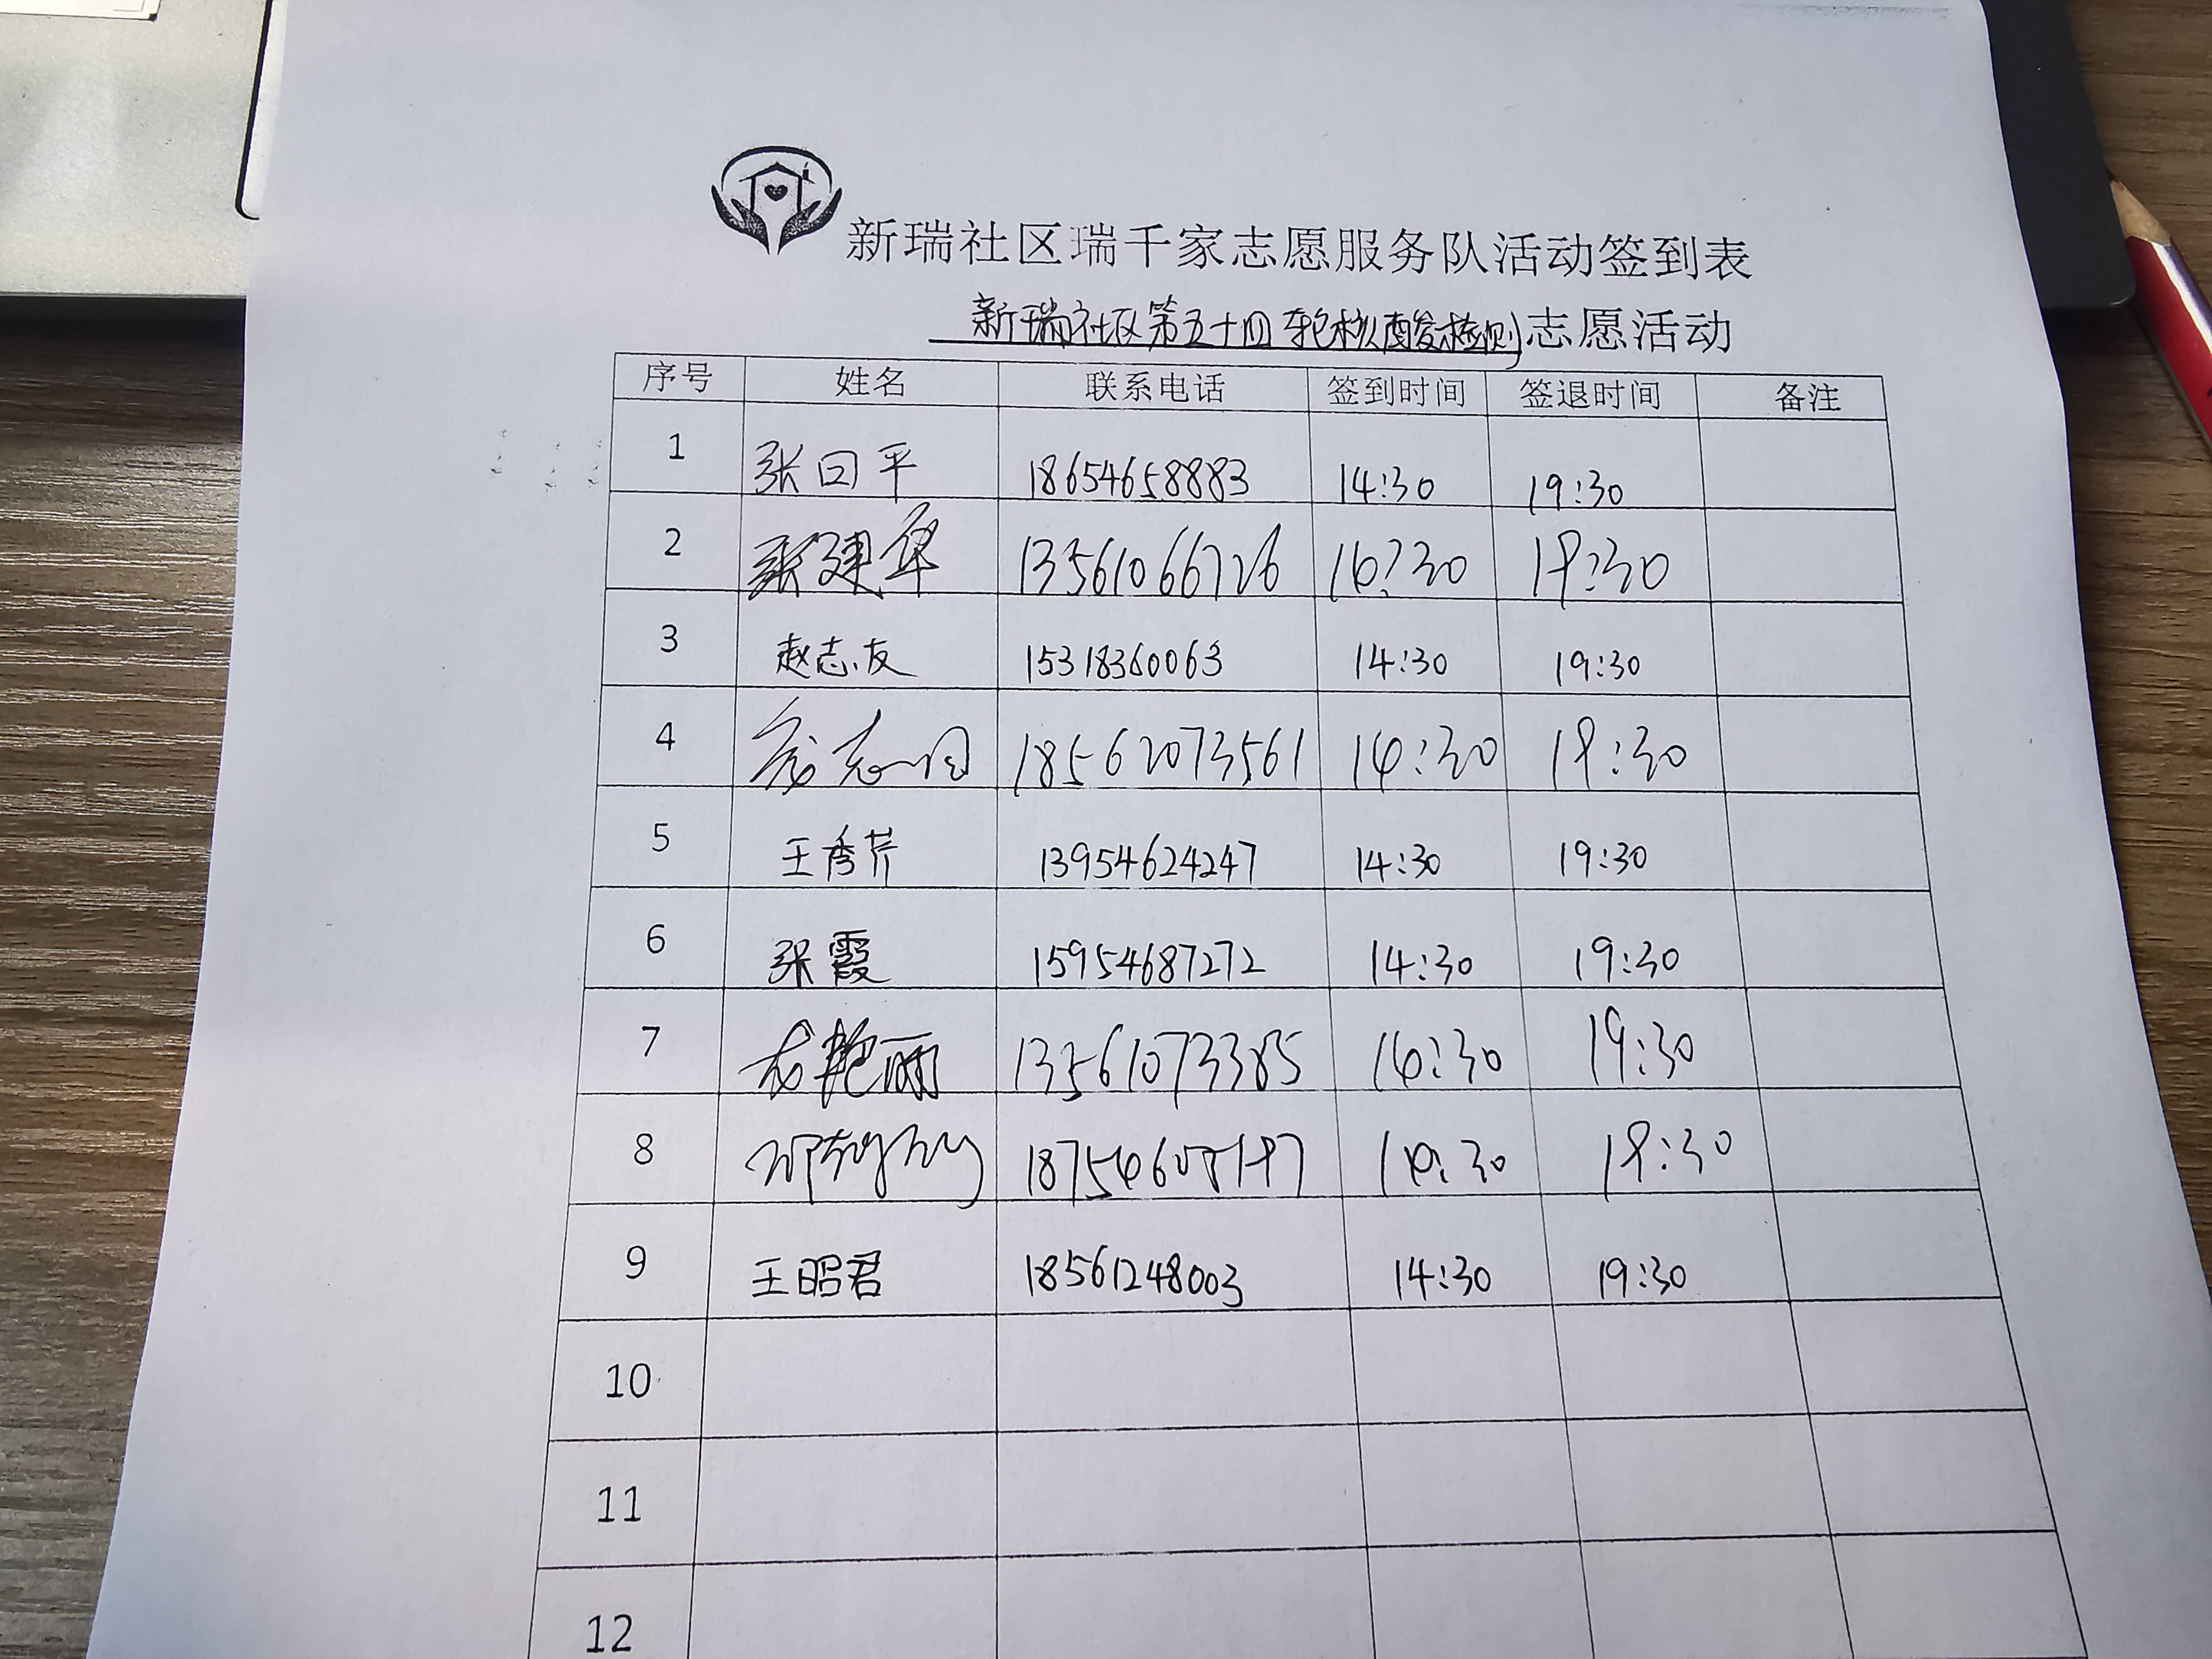 新瑞社区瑞千家志愿服务队活动签到表
新瑞社区第五十四轮核酸检测志愿活动
序号 姓名 联系电话 签到时间 签退时间 备注
1 张回平 18654658883 14:30 19:30
2 张建华 13561066726 14:30 19:30
3 赵志友 15318360063 14:30 19:30
4 18562073561 14:30 19:30
5 王秀芹 13954624247 14:30 19:30
6 张霞 15954687272 14:30 19:30
7 艳丽 13561073385 14:30 19:30
8 14:30 19:30
9 王昭君 18561248003 14:30 19:30
10
11
12